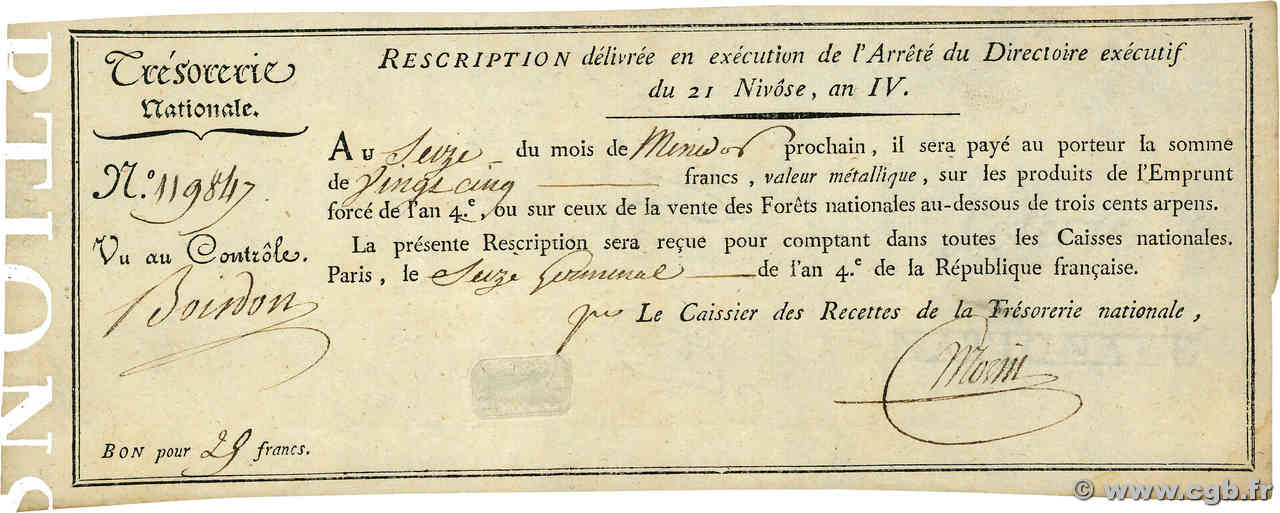 PTIONS
Trésorerie
Nationale.
N.º 119847
Vu au Contrôle.
Boirdon
BON pour 25 francs.
RESCRIPTION délivrée en exécution de l'Arrêté du Directoire exécutif
du 21 Nivôse, an IV.
AU Seize du mois de Messidor prochain, il sera payé au porteur la somme
de Vingt cinq francs, valeur métallique, sur les produits de l'Emprunt
forcé de l'an 4.e, ou sur ceux de la vente des Forêts nationales au-dessous de trois cents arpens.
La présente Rescription sera reçue pour comptant dans toutes les Caisses nationales.
Paris, le Seize Germinal de l'an 4.e de la République française.
Le Caissier des Recettes de la Trésorerie nationale,
© www.cgb.fr